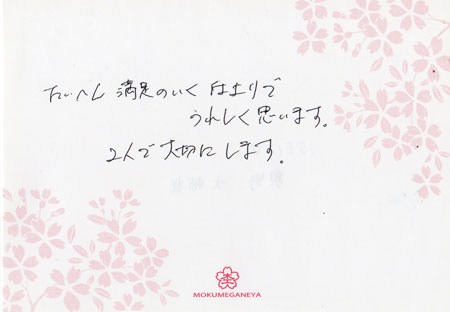 たいへん 満足のいく 仕上りで
うれしく思います。
2人で大切にします。
MOKUMEGANEYA